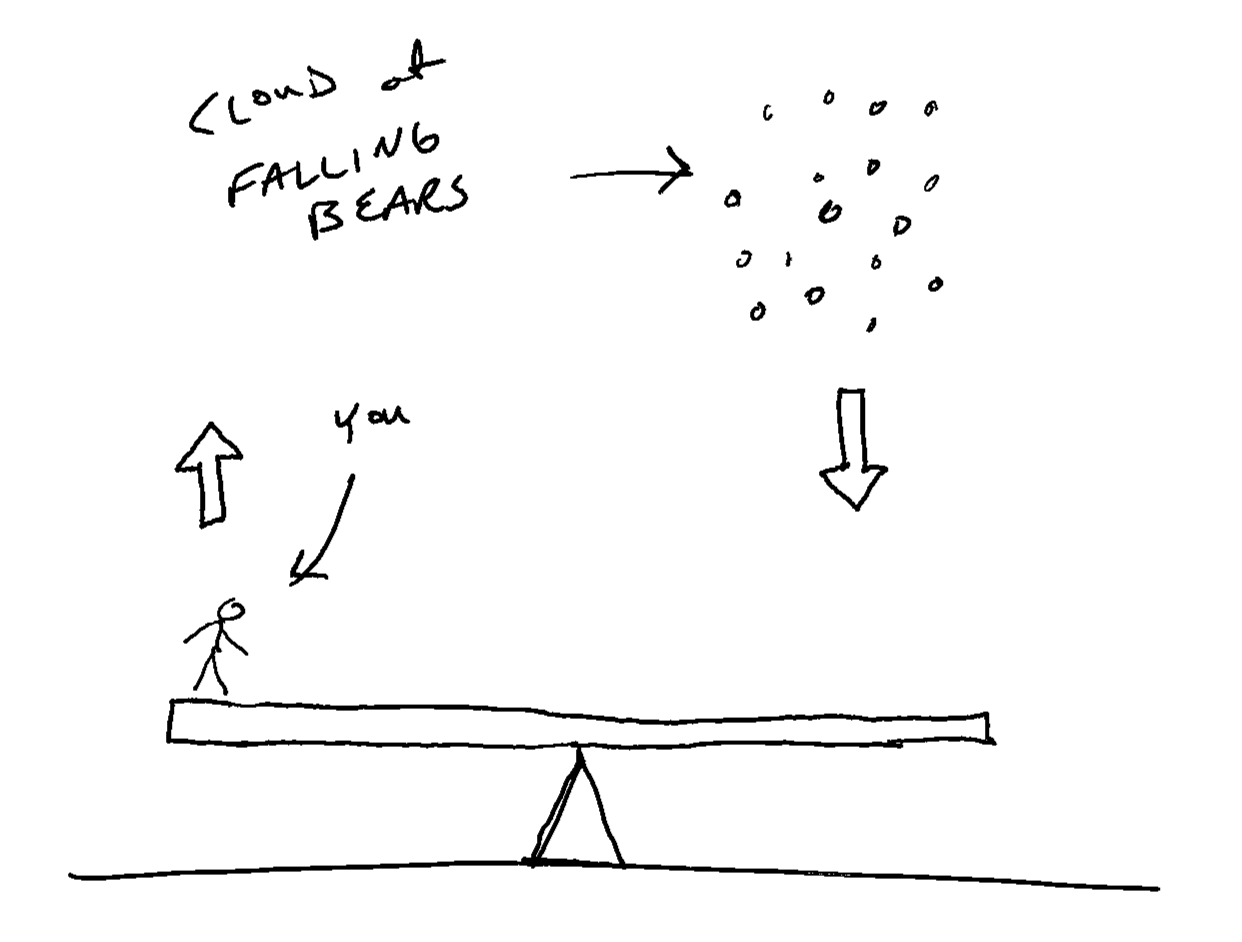 CLOUD of
FALLING
BEARS
you